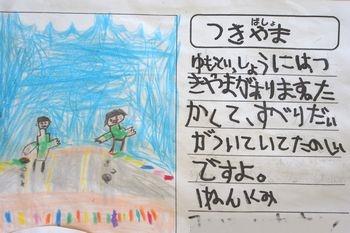 ばしょ
つきやま
ゆもていしょうにはつ
きやまがあります。た
かくて、すべりだい
がついていてたのしい
ですよ。
1ねん1くみ